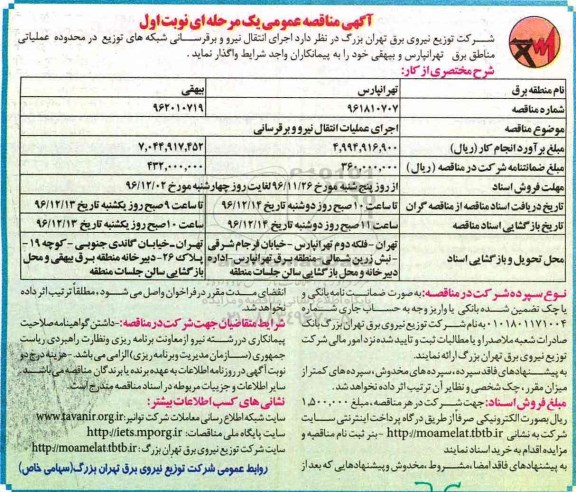 آگهی مناقصه عمومی یک مرحله ای نوبت اول
شرکت توزیع نیروی برق تهران بزرگ در نظر دارد اجرای انتقال نیرو و برقرسانی شبکه های توزیع در محدوده عملیاتی
مناطق برق تهرانپارس و بیهقی خود را به پیمانکاران واجد شرایط واگذار نماید.
شرح مختصری از کار:
نام منطقه برق تهرانپارس بیهقی
شماره مناقصه ۹۶۱۸۱۰۷۰۷ ۹۶۲۰۱۰۷۱۹
موضوع مناقصه اجرای عملیات انتقال نیرو و برقرسانی
مبلغ برآورد انجام کار (ریال) ۴,۹۹۴,۹۱۶,۹۰۰ ۷,۰۴۴,۹۱۷,۴۵۲
مبلغ ضمانتنامه شرکت در مناقصه (ریال) ۳۶۰,۰۰۰,۰۰۰ ۴۳۲,۰۰۰,۰۰۰
مهلت فروش اسناد از روز پنج شنبه مورخ ۹۶/۱۱/۲۶ لغایت روز چهارشنبه مورخ ۹۶/۱۲/۰۲
تاریخ دریافت اسناد مناقصه از مناقصه گران تا ساعت ۱۰ صبح روز دوشنبه تاریخ ۹۶/۱۲/۱۴ تا ساعت ۹ صبح روز یکشنبه تاریخ ۹۶/۱۲/۱۳
تاریخ بازگشایی اسناد مناقصه ساعت ۱۱ صبح روز دوشنبه تاریخ ۹۶/۱۲/۱۴ ساعت ۱۰ صبح روز یکشنبه تاریخ ۹۶/۱۲/۱۳
محل تحویل و بازگشایی اسناد
تهران - فلکه دوم تهرانپارس - خیابان فرجام شرقی
- نبش زرین شمالی - منطقه برق تهرانپارس - اداره
دبیرخانه و محل بازگشایی سالن جلسات منطقه
تهران - خیابان گاندی جنوبی - کوچه ۱۹ -
پلاک ۲۶ - دبیرخانه منطقه برق بیهقی و محل
بازگشایی سالن جلسات منطقه
نوع سپرده شرکت در مناقصه: به صورت ضمانت نامه بانکی و
یا چک تضمین شده بانکی یا واریز وجه به حساب جاری شماره
۰۱۰۱۸۰۱۱۷۱۰۰۴ به نام شرکت توزیع نیروی برق تهران بزرگ بانک
صادرات شعبه ملاصدرا و یا مطالبات ثبت و تایید شده نزد امور مالی شرکت
توزیع نیروی برق تهران بزرگ ارائه نمایند.
به پیشنهادهای فاقد سپرده، سپرده های مخدوش، سپرده های کمتر از
میزان مقرر، چک شخصی و نظایر آن ترتیب اثر داده نخواهد شد.
مبلغ فروش اسناد: جهت شرکت در هر مناقصه، مبلغ ۱,۵۰۰,۰۰۰
ریال بصورت الکترونیکی صرفا از طریق درگاه پرداخت اینترنتی سایت
شرکت به نشانی http://moamelat.tbtb.ir - بنر ثبت نام مناقصه و
مزایده اقدام به خرید اسناد نمایند
به پیشنهادهای فاقد امضا، مشروط، مخدوش و پیشنهادهایی که بعد از
انقضای مدت مقرر در فراخوان واصل می شود، مطلقاً ترتیب اثر داده
نخواهد شد.
شرایط متقاضیان جهت شرکت در مناقصه: - داشتن گواهینامه صلاحیت
پیمانکاری در رشته نیرو از معاونت برنامه ریزی ونظارت راهبردی ریاست
جمهوری (سازمان مدیریت و برنامه ریزی) الزامی می باشد. - هزینه درج دو
نوبت آگهی در روزنامه اطلاعات به عهده برنده یا برندگان مناقصه می باشد.
سایر اطلاعات و جزییات مربوطه در اسناد مناقصه مندرج است.
نشانی های کسب اطلاعات بیشتر:
شبکه اطلاع رسانی معاملات شرکت توانیر: www.tavanir.org.ir
سایت پایگاه ملی مناقصات: http://iets.mporg.ir
سایت شرکت توزیع نیروی برق تهران بزرگ: http://moamelat.tbtb.ir
روابط عمومی شرکت توزیع نیروی برق تهران بزرگ (سهامی خاص)